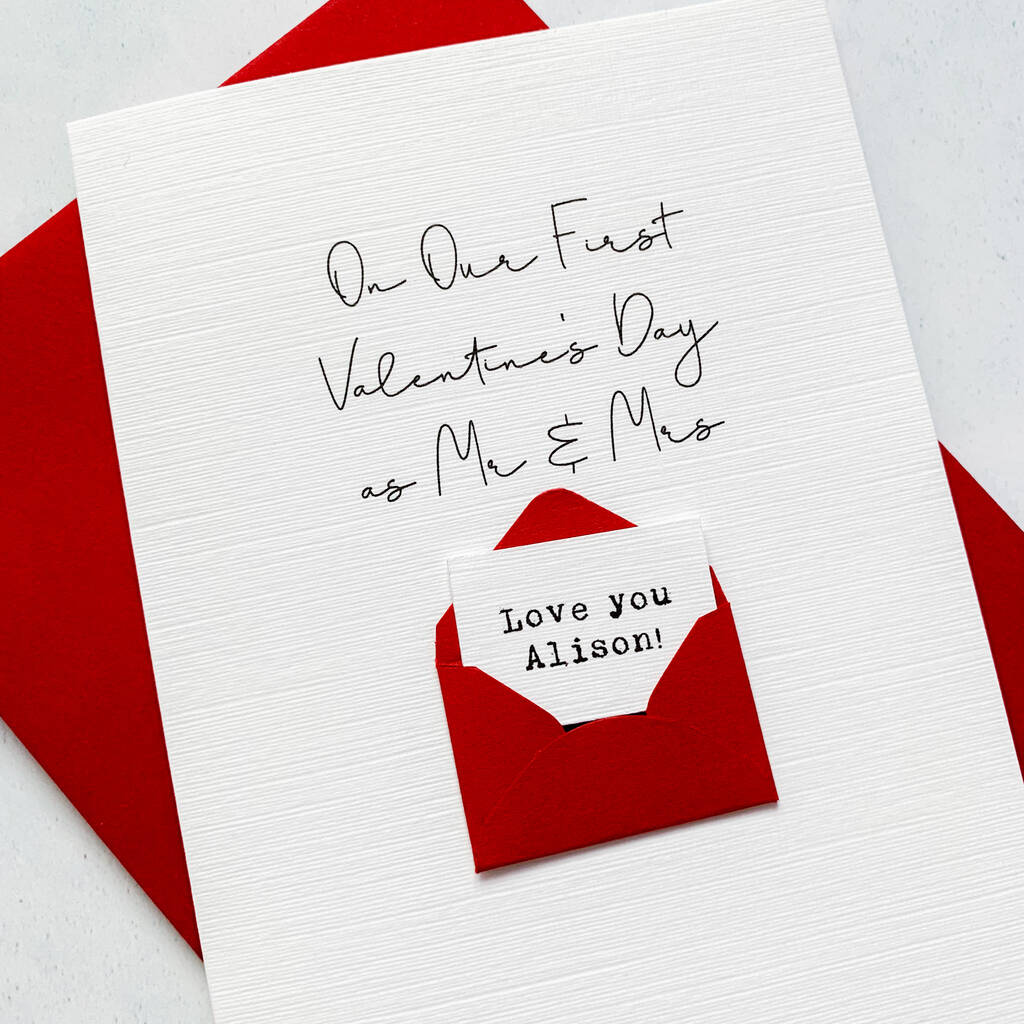 On Our First
Valentine's Day
as Mr & Mrs
Love you
Alison!